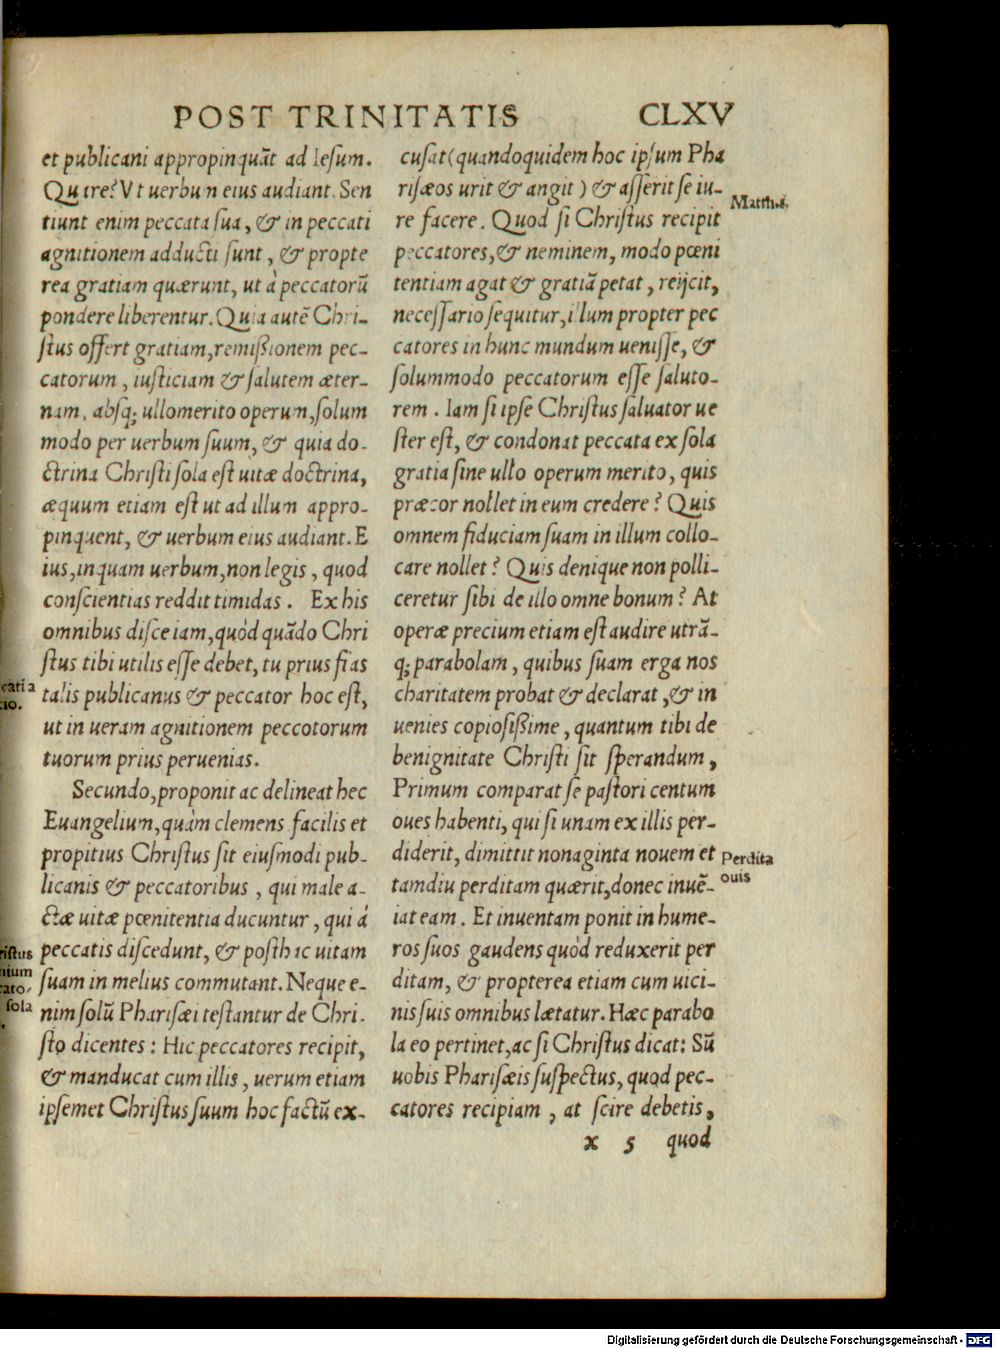 POST TRINITATIS CLXV
et publicani appropinquāt ad Iesum.
Quare? Vt uerbum eius audiant. Sen
tiunt enim peccata sua, & in peccati
agnitionem adducti sunt, & propte
rea gratiam quærunt, ut à peccatorū
pondere liberentur. Quia autē Chri-
stus offert gratiam, remißionem pec-
catorum, iusticiam & salutem æter-
nam, absq; ullo merito operum, solum
modo per uerbum suum, & quia do-
ctrina Christi sola est uitæ doctrina,
æquum etiam est ut ad illum appro-
pinquent, & uerbum eius audiant. E
ius, inquam uerbum, non legis, quod
conscientias reddit timidas. Ex his
omnibus disce iam, quòd quādo Chri
stus tibi utilis esse debet, tu prius fias
talis publicanus & peccator hoc est,
ut in ueram agnitionem peccotorum
tuorum prius peruenias.
Secundo, proponit ac delineat hec
Euangelium, quàm clemens facilis et
propitius Christus sit eiusmodi pub-
licanis & peccatoribus, qui male a-
ctæ uitæ pœnitentia ducuntur, qui á
peccatis discedunt, & posthac uitam
suam in melius commutant. Neque e-
nim solū Pharisæi testantur de Chri-
sto dicentes: Hic peccatores recipit,
& manducat cum illis, uerum etiam
ipsemet Christus suum hoc factū ex-
catia
tio.
ristus
tium
cato-
sola
cusat (quandoquidem hoc ipsum Pha
risæos urit & angit) & asserit se iu-
re facere. Quod si Christus recipit
peccatores, & neminem, modo pœni
tentiam agat & gratiā petat, reijcit,
necessario sequitur, illum propter pec
catores in hunc mundum uenisse, &
solummodo peccatorum esse saluto-
rem. Iam si ipse Christus saluator ue
ster est, & condonat peccata ex sola
gratia sine ullo operum merito, quis
præcor nollet in eum credere? Quis
omnem fiduciam suam in illum collo-
care nollet? Quis denique non polli-
ceretur sibi de illo omne bonum? At
operæ precium etiam est audire utrā-
q; parabolam, quibus suam erga nos
charitatem probat & declarat, & in
uenies copiosißime, quantum tibi de
benignitate Christi sit sperandum,
Primum comparat se pastori centum
oues habenti, qui si unam ex illis per-
diderit, dimittit nonaginta nouem et
tamdiu perditam quærit, donec inuē-
iat eam. Et inuentam ponit in hume-
ros suos gaudens quòd reduxerit per
ditam, & propterea etiam cum uici-
nis suis omnibus lætatur. Hæc parabo
la eo pertinet, ac si Christus dicat: Sū
uobis Pharisæis suspectus, quod pec-
catores recipiam, at scire debetis,
Matth.
Perdita
ouis
x 5 quod
Digitalisierung gefördert durch die Deutsche Forschungsgemeinschaft - DFG